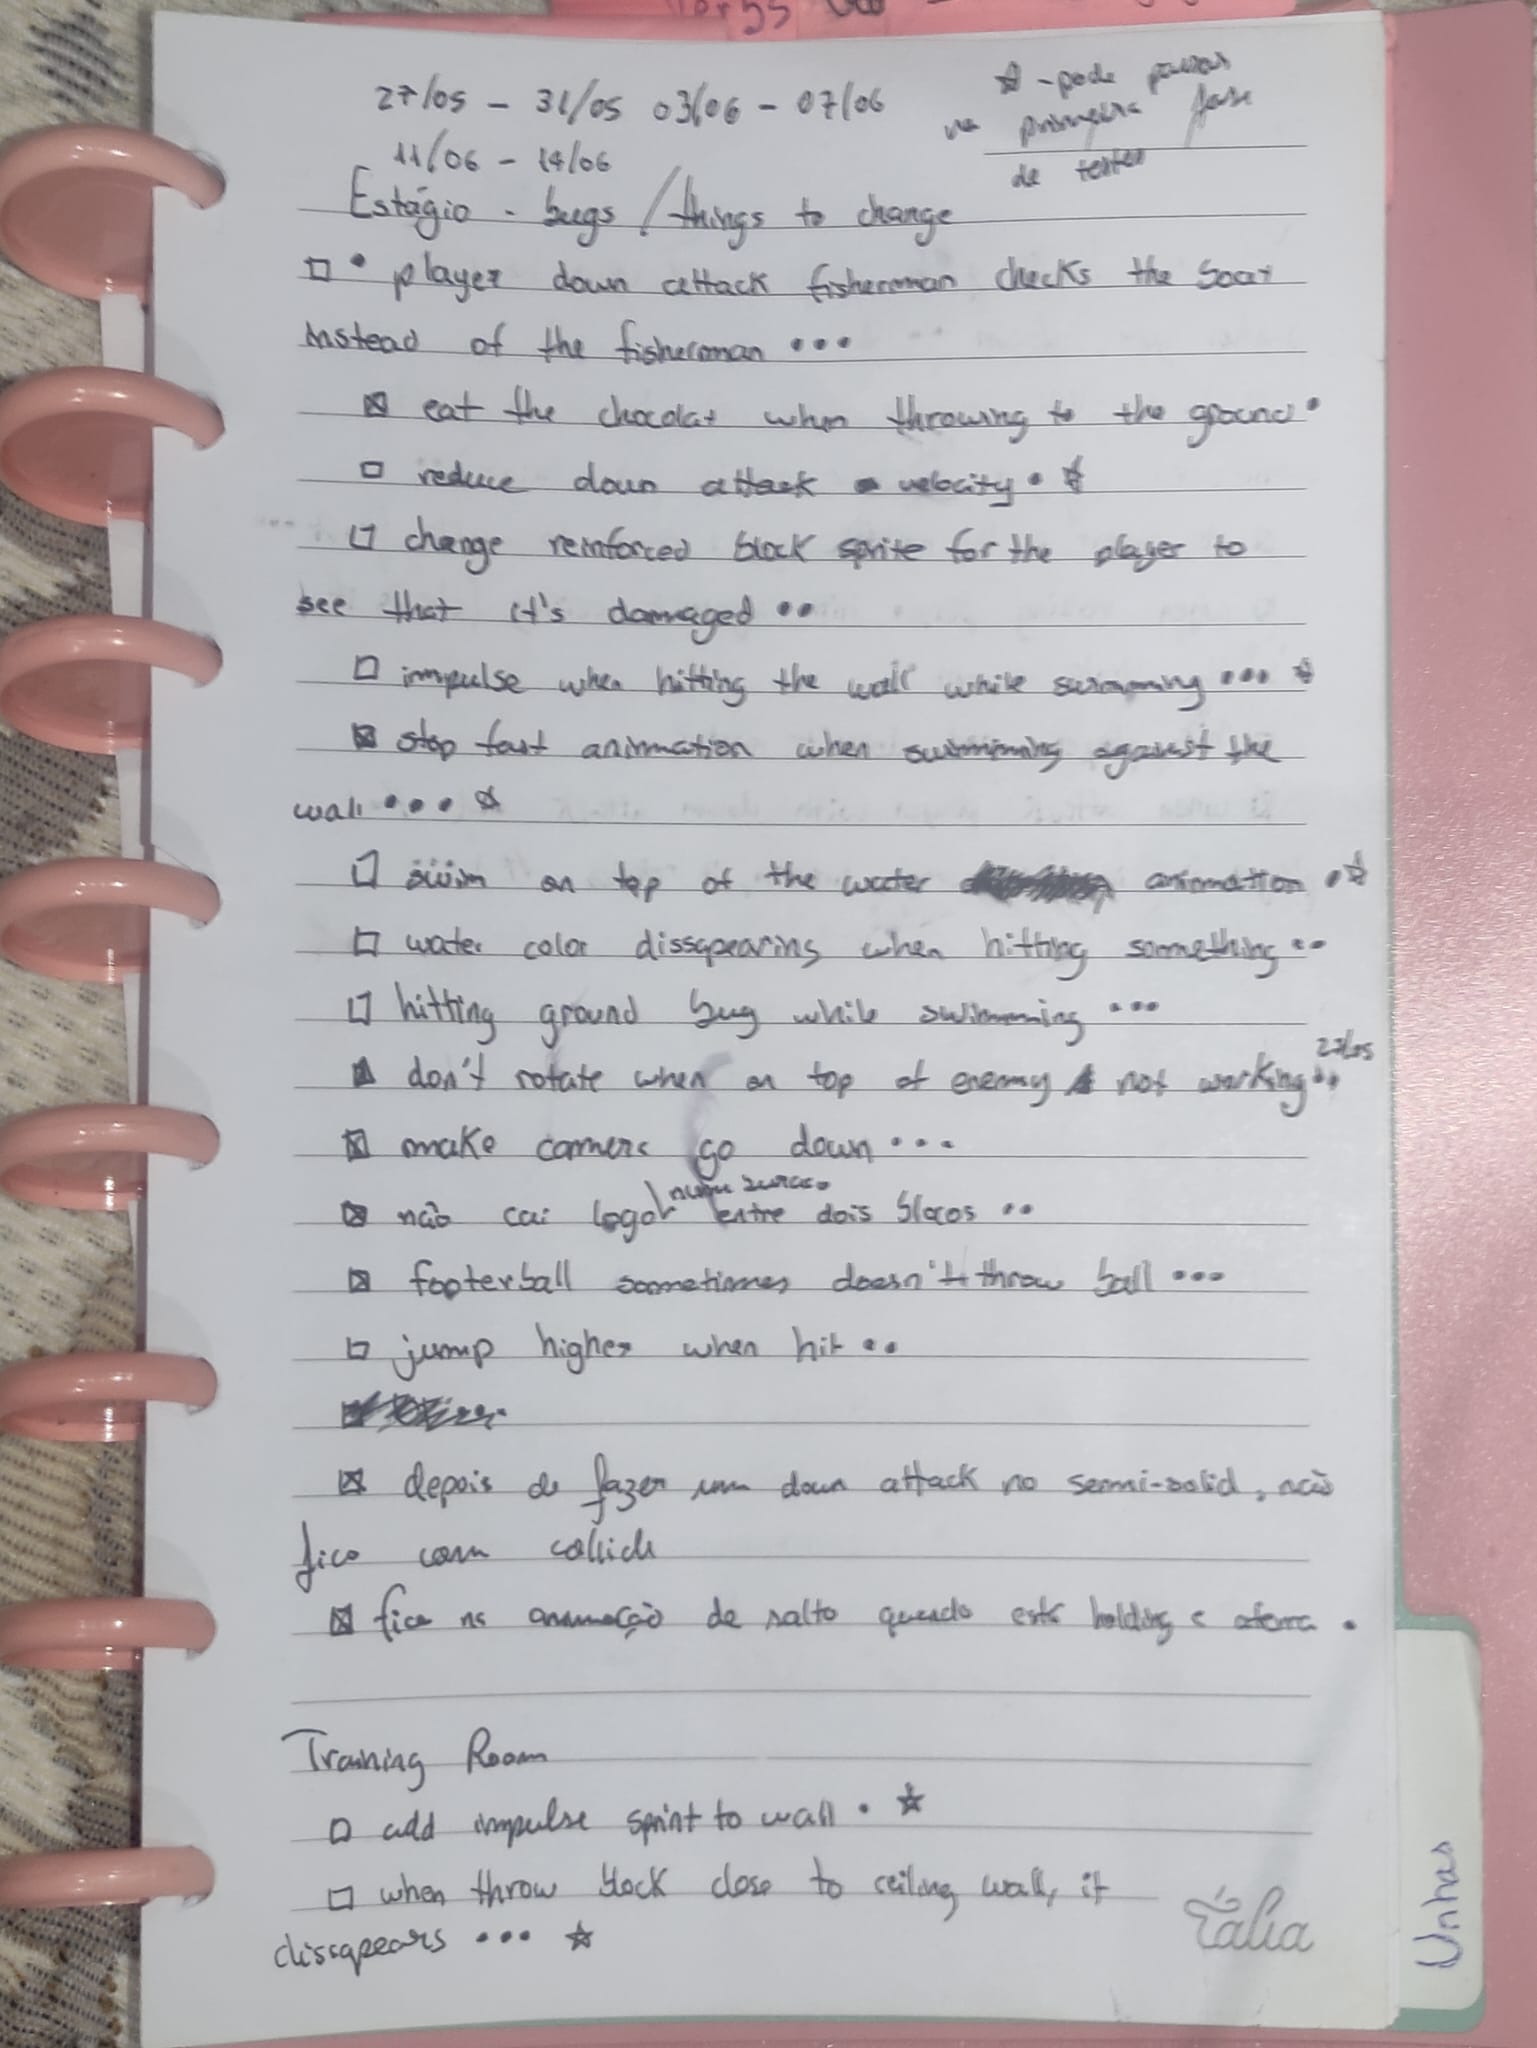 27/05 - 31/05 03/06 - 07/06
☆ - pode passar
na primeira fase
de testes
11/06 - 14/06
Estágio - bugs / things to change
□ • player down attack fisherman checks the boat
instead of the fisherman •••
☒ eat the chocolat when throwing to the ground •
□ reduce down attack velocity • ☆
□ change reinforced block sprite for the player to
see that it's damaged ••
□ impulse when hitting the wall while swimming ••• ☆
☒ stop fast animation when swimming against the
wall ••• ☆
□ swim on top of the water animation • ☆
□ water color dissapearing when hitting something ••
□ hitting ground bug while swimming •••
27/05
☒ don't rotate when on top of enemy not working ••
☒ make camera go down •••
☒ não cai logo num buraco entre dois blocos ••
☒ footerball sometimes doesn't throw ball •••
□ jump higher when hit ••
☒ depois de fazer um down attack no semi-solid, não
fico com collide
☒ fica na animação de salto quando está holding e aterra •
Training Room
□ add impulse sprint to wall • ☆
□ when throw block close to ceiling wall, it
dissapears ••• ☆
Tália
Unhas